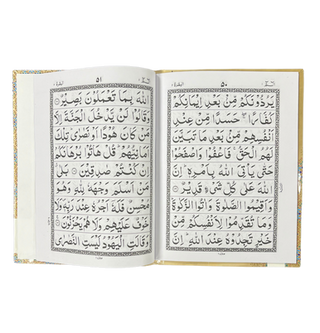 ٥٠
يَرُدُّوْنَكُمْ مِّنْۢ بَعْدِ اِيْمَانِكُمْ
كُفَّارًا ۚ حَسَدًا مِّنْ عِنْدِ
اَنْفُسِهِمْ مِّنْۢ بَعْدِ مَا تَبَيَّنَ
لَهُمُ الْحَقُّ ۚ فَاعْفُوْا وَاصْفَحُوْا
حَتّٰى يَاْتِيَ اللّٰهُ بِاَمْرِهٖ ؕ اِنَّ
اللّٰهَ عَلٰى كُلِّ شَيْءٍ قَدِيْرٌ
وَاَقِيْمُوا الصَّلٰوةَ وَاٰتُوا الزَّكٰوةَ ؕ
وَمَا تُقَدِّمُوْا لِاَنْفُسِكُمْ مِّنْ
خَيْرٍ تَجِدُوْهُ عِنْدَ اللّٰهِ ؕ اِنَّ
٥١
اللّٰهَ بِمَا تَعْمَلُوْنَ بَصِيْرٌ
وَقَالُوْا لَنْ يَّدْخُلَ الْجَنَّةَ اِلَّا
مَنْ كَانَ هُوْدًا اَوْ نَصٰرٰى ؕ تِلْكَ
اَمَانِيُّهُمْ ؕ قُلْ هَاتُوْا بُرْهَانَكُمْ
اِنْ كُنْتُمْ صٰدِقِيْنَ بَلٰى
مَنْ اَسْلَمَ وَجْهَهٗ لِلّٰهِ وَهُوَ
مُحْسِنٌ فَلَهٗٓ اَجْرُهٗ عِنْدَ رَبِّهٖ وَلَا
خَوْفٌ عَلَيْهِمْ وَلَا هُمْ يَحْزَنُوْنَ
وَقَالَتِ الْيَهُوْدُ لَيْسَتِ النَّصٰرٰى